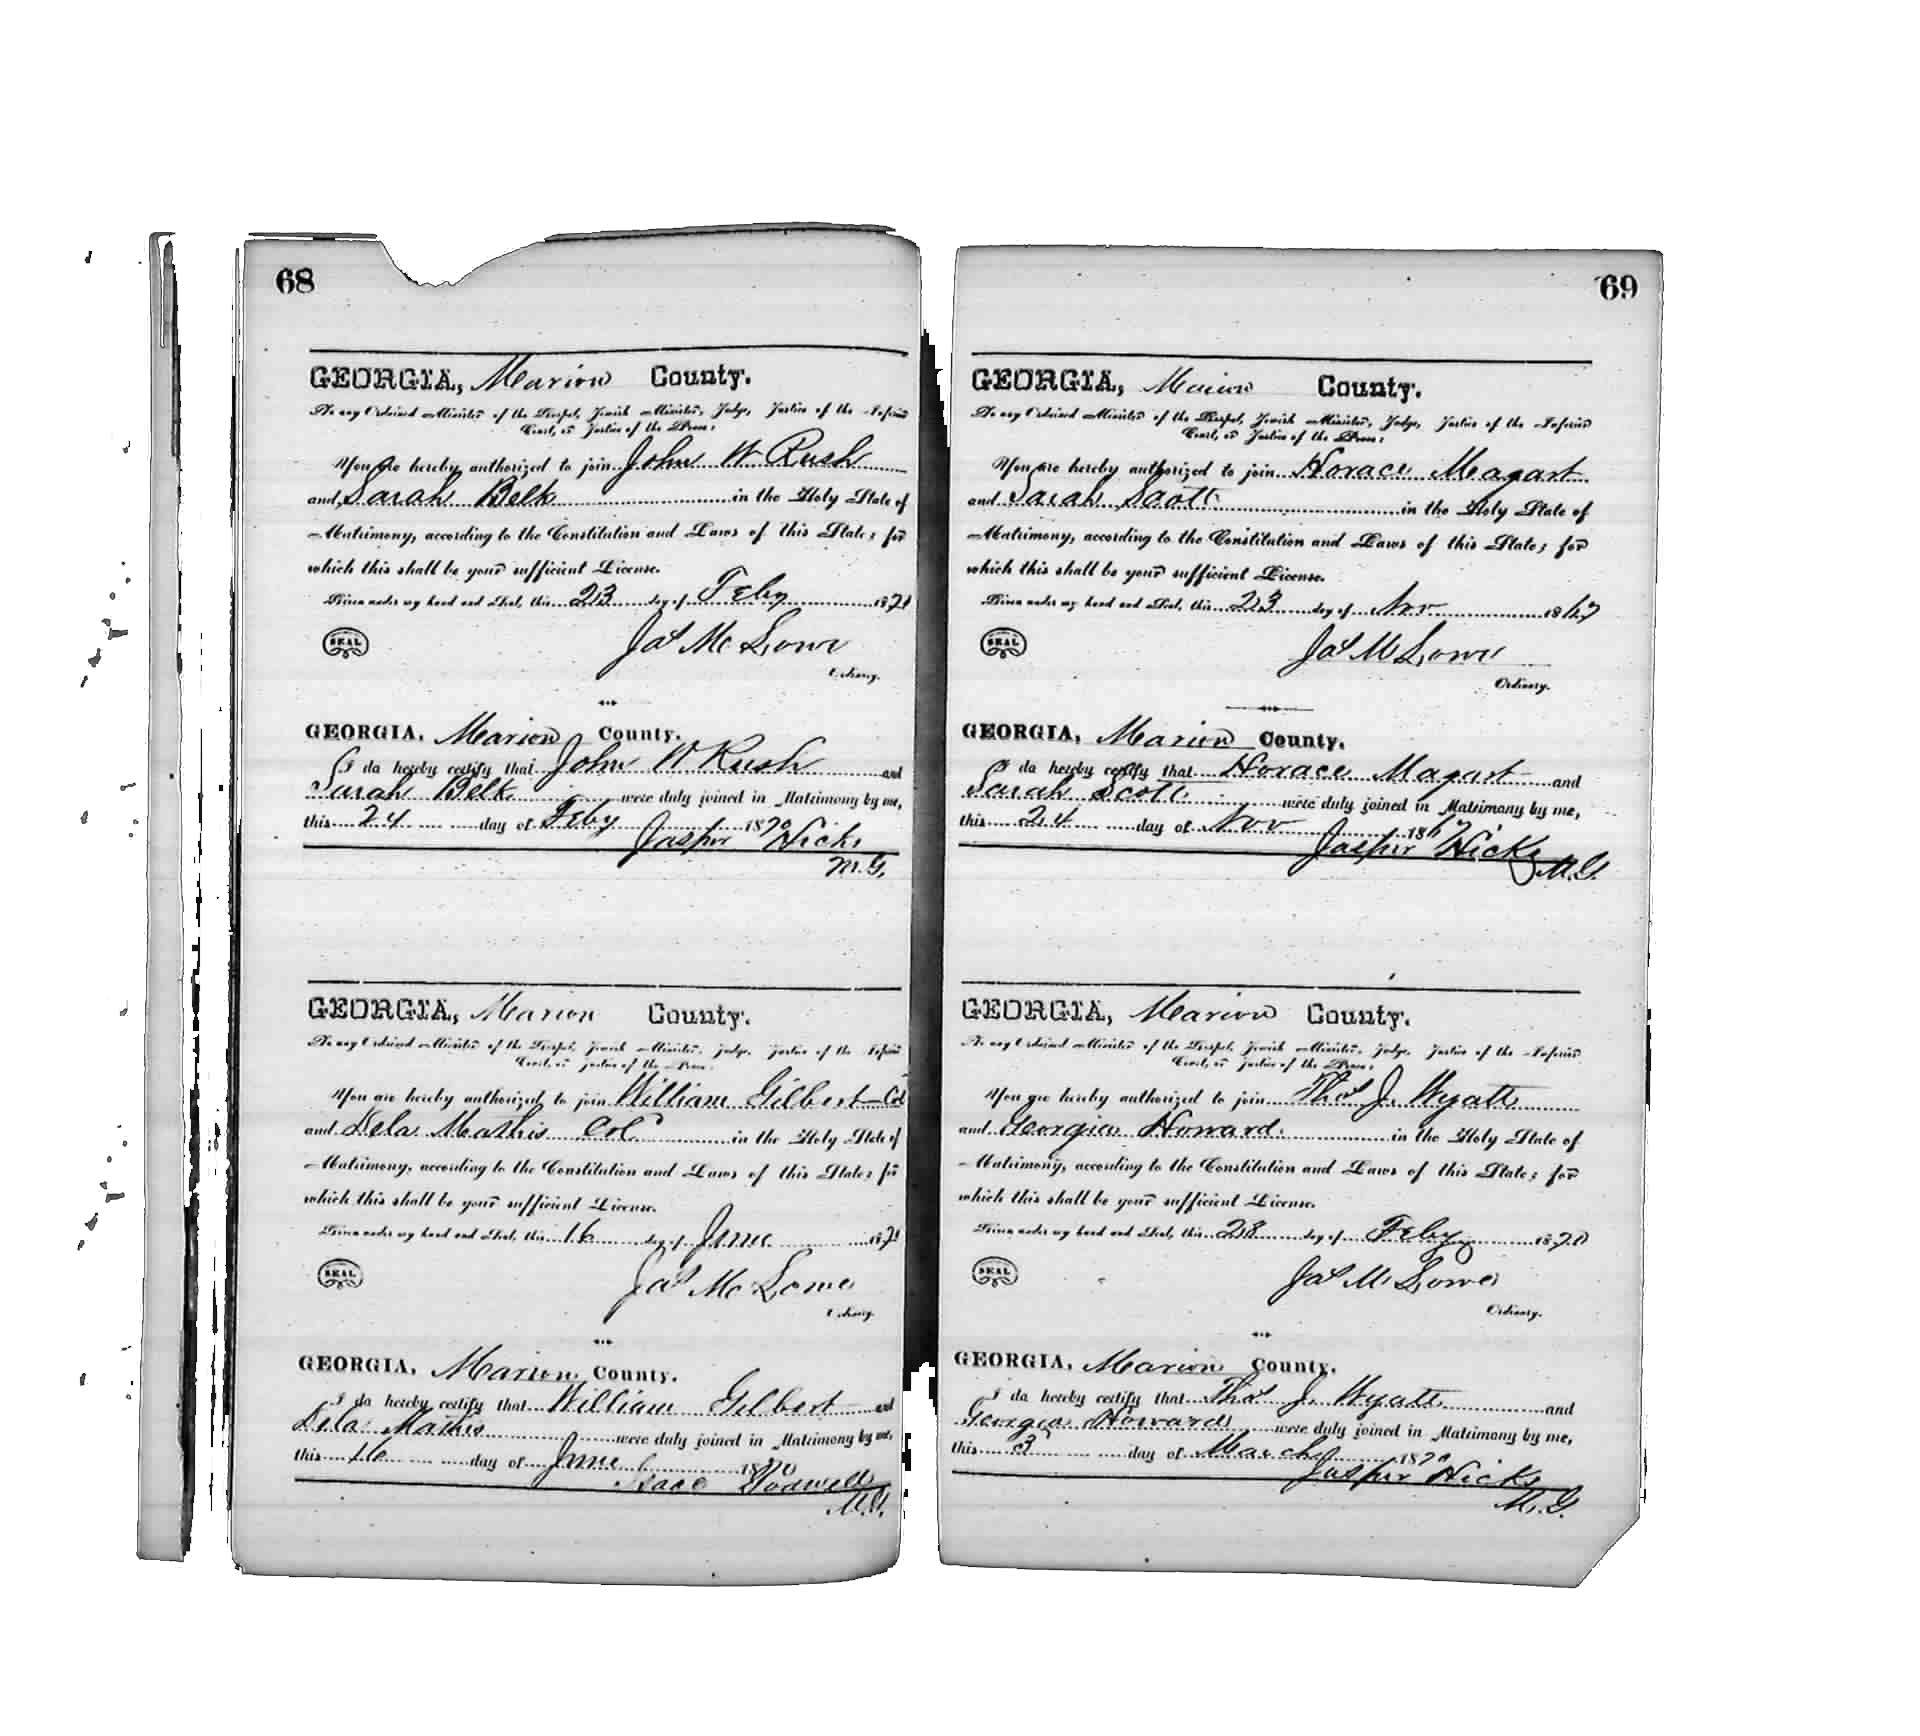 68
GEORGIA, Marion County.
To any Ordained Minister of the Gospel, Jewish Minister, Judge, Justice of the Inferior
Court, or Justice of the Peace:
You are hereby authorized to join John W Rush
and Sarah Belk in the Holy State of
Matrimony, according to the Constitution and Laws of this State; for
which this shall be your sufficient License.
Given under my hand and Seal, this 23 day of Feby 187
SEAL
Jas M Lowe
Ordinary.
GEORGIA, Marion County.
I do hereby certify that John W Rush and
Sarah Belk were duly joined in Matrimony by me,
this 24 day of Feby 1870
Jasper Hicks
M.G.
GEORGIA, Marion County.
To any Ordained Minister of the Gospel, Jewish Minister, Judge, Justice of the Inferior
Court, or Justice of the Peace:
You are hereby authorized to join William Gilbert Col
and Dela Mathis Col in the Holy State of
Matrimony, according to the Constitution and Laws of this State; for
which this shall be your sufficient License.
Given under my hand and Seal, this 16 day of June 187
SEAL
Jas M Lowe
Ordinary.
GEORGIA, Marion County.
I do hereby certify that William Gilbert and
Dela Mathis were duly joined in Matrimony by me,
this 16 day of June 1870
Isaac
M.G.
69
GEORGIA, Marion County.
To any Ordained Minister of the Gospel, Jewish Minister, Judge, Justice of the Inferior
Court, or Justice of the Peace:
You are hereby authorized to join Horace Magart
and Sarah Scott in the Holy State of
Matrimony, according to the Constitution and Laws of this State; for
which this shall be your sufficient License.
Given under my hand and Seal, this 23 day of Nov 1867
SEAL
Jas M Lowe
Ordinary.
GEORGIA, Marion County.
I do hereby certify that Horace Magart and
Sarah Scott were duly joined in Matrimony by me,
this 24 day of Nov 1867
Jasper Hicks
M.G.
GEORGIA, Marion County.
To any Ordained Minister of the Gospel, Jewish Minister, Judge, Justice of the Inferior
Court, or Justice of the Peace:
You are hereby authorized to join Thos J. Wyatt
and Georgia Howard in the Holy State of
Matrimony, according to the Constitution and Laws of this State; for
which this shall be your sufficient License.
Given under my hand and Seal, this 28 day of Feby 1870
SEAL
Jas M Lowe
Ordinary.
GEORGIA, Marion County.
I do hereby certify that Thos J. Wyatt and
Georgia Howard were duly joined in Matrimony by me,
this 3 day of March 1870
Jasper Hicks
M.G.